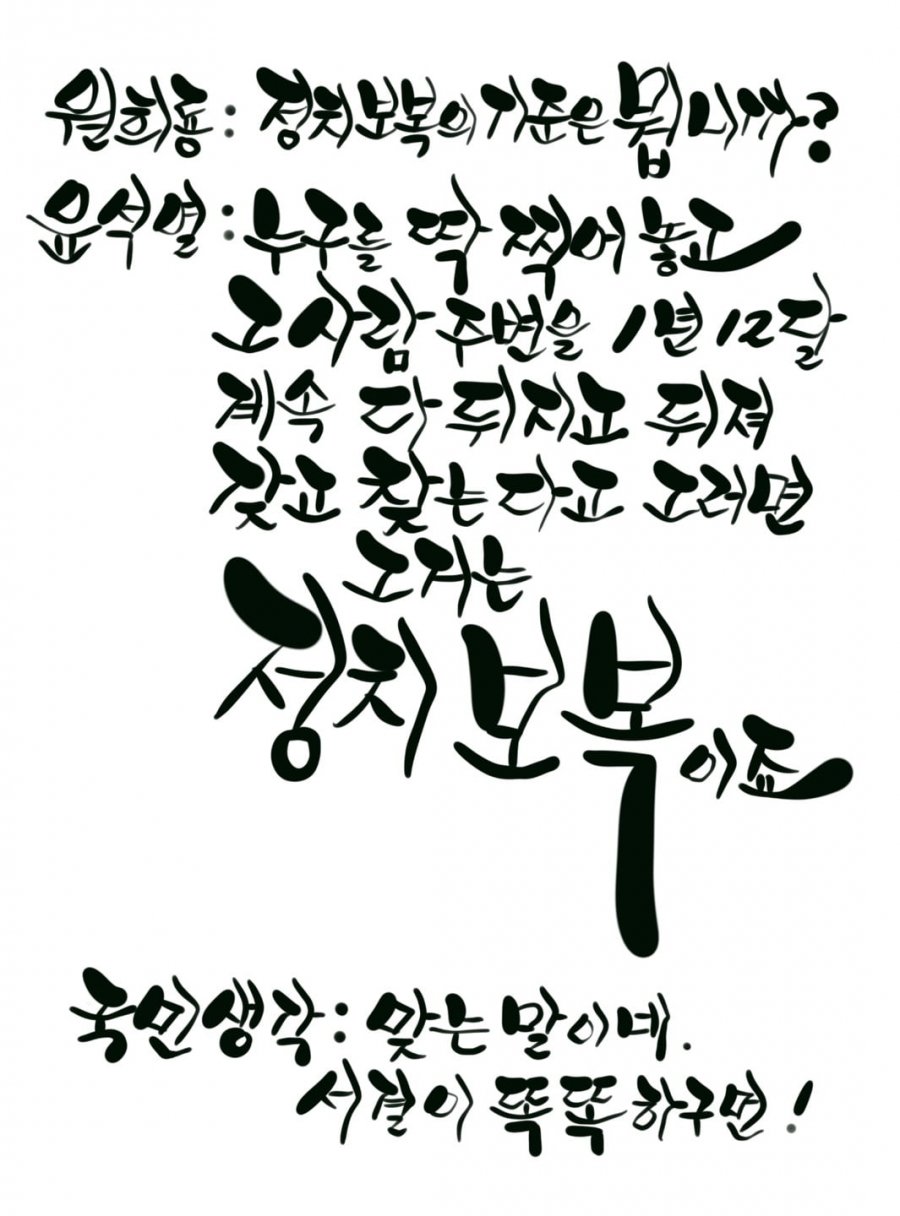 원희룡 : 정치보복의 기준은 뭡니까?
윤석열 : 누구를 딱 찍어 놓고
그 사람 주변을 1년 12달
계속 다 뒤지고 뒤져
찾고 찾는다고 그러면
그거는
정치보복이죠
국민생각 : 맞는 말이네.
석결이 똑똑하구먼!